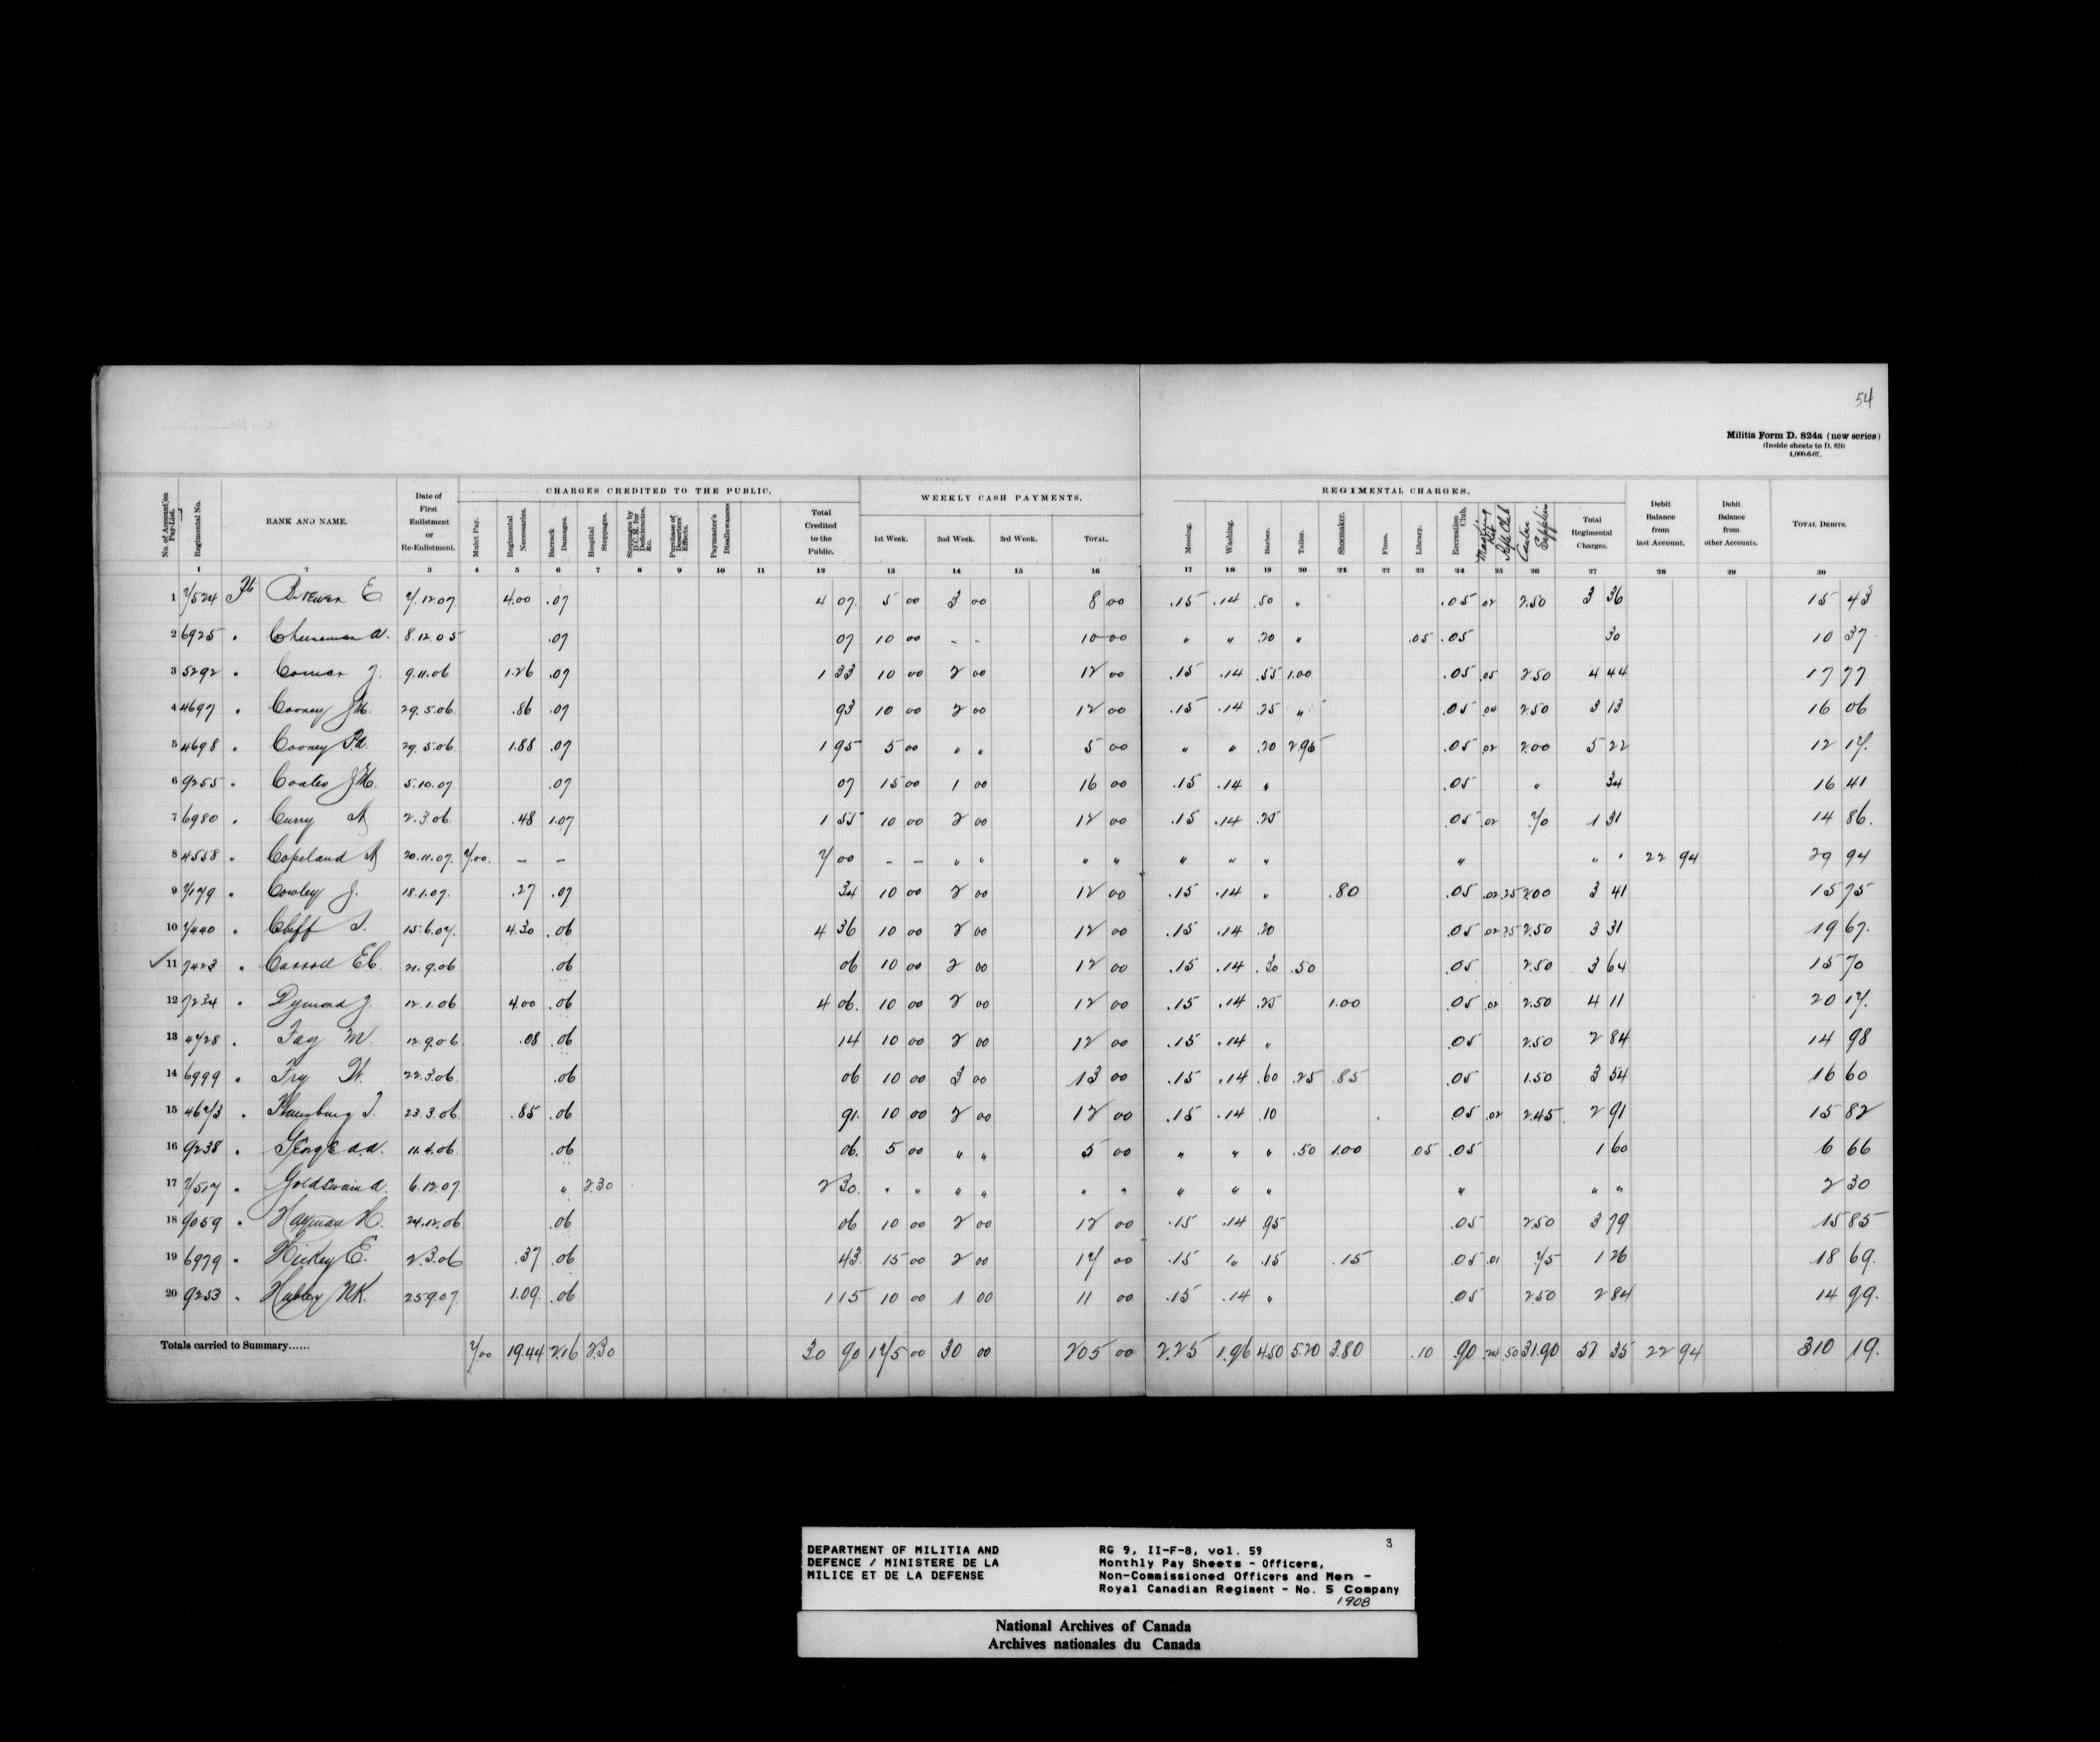 54
Militia Form D. 824a (new series)
(Inside sheets to D. 824)
4,000-6-07.
CHARGES CREDITED TO THE PUBLIC. WEEKLY CASH PAYMENTS. REGIMENTAL CHARGES.
No. of Account on Pay-List. Regimental No. RANK AND NAME. Date of First Enlistment or Re-Enlistment. Mulct Pay. Regimental Necessaries. Barrack Damages. Hospital Stoppages. Stoppages by D.C.M. for Deficiencies, &c. Purchase of Deserters' Effects. Paymaster's Disallowances Total Credited to the Public. 1st Week. 2nd Week. 3rd Week. TOTAL. Messing. Washing. Barber. Tailor. Shoemaker. Fines. Library. Recreation Club. Marking Kit Sgts Club Canteen Supplies Total Regimental Charges. Debit Balance from last Account. Debit Balance from other Accounts. TOTAL DEBITS.
1 2 3 4 5 6 7 8 9 10 11 12 13 14 15 16 17 18 19 20 21 22 23 24 25 26 27 28 29 30
1 7524 Pte Brewer E. 7.12.07 4.00 .07 4 07 5 00 3 00 8 00 .15 .14 .50 " .05 .02 2.50 3 36 15 43
2 6925 " Cheeseman A. 8.12.05 .07 07 10 00 - - 10 00 " " .20 " .05 .05 30 10 37
3 5292 " Comar J. 9.11.06 1.26 .07 1 33 10 00 2 00 12 00 .15 .14 .55 1.00 .05 .05 2.50 4 44 17 77
4 4697 " Cooney J.M. 29.5.06 .86 .07 93 10 00 2 00 12 00 .15 .14 .25 " .05 .04 2.50 3 13 16 06
5 4698 " Cooney P.A. 29.5.06 1.88 .07 1 95 5 00 " " 5 00 " " .20 2.95 .05 .02 2.00 5 22 12 17
6 9255 " Coates J.M. 5.10.07 .07 07 15 00 1 00 16 00 .15 .14 " .05 " 34 16 41
7 6980 " Curry A. 2.3.06 .48 1.07 1 55 10 00 2 00 12 00 .15 .14 .25 .05 .02 70 1 31 14 86
8 4558 " Copeland A. 20.11.07 7.00 - - 7 00 - - " " " " " " " " " " 22 94 29 94
9 7179 " Cowley J. 18.1.07 .27 .07 34 10 00 2 00 12 00 .15 .14 " .80 .05 .02 .25 2.00 3 41 15 75
10 7440 " Cliff S. 15.6.07 4.30 .06 4 36 10 00 2 00 12 00 .15 .14 .20 .05 .02 .25 2.50 3 31 19 67
11 7423 " Carroll E.C. 21.9.06 .06 06 10 00 2 00 12 00 .15 .14 .30 .50 .05 2.50 3 64 15 70
12 7234 " Dymond J. 12.1.06 4.00 .06 4 06 10 00 2 00 12 00 .15 .14 .25 1.00 .05 .02 2.50 4 11 20 17
13 4728 " Fay M. 12.9.06 .08 .06 14 10 00 2 00 12 00 .15 .14 " .05 2.50 2 84 14 98
14 6999 " Fry W. 22.3.06 .06 06 10 00 3 00 13 00 .15 .14 .60 .25 .85 .05 1.50 3 54 16 60
15 4673 " 23.3.06 .85 .06 91 10 00 2 00 12 00 .15 .14 .10 .05 .02 2.45 2 91 15 82
16 9238 " George A.A. 11.4.06 .06 06 5 00 " " 5 00 " " " .50 1.00 .05 .05 1 60 6 66
17 7517 " Goldswain A. 6.12.07 " 2.30 2 30 " " " " " " " " " " " " 2 30
18 9059 " Hayman H. 24.12.06 .06 06 10 00 2 00 12 00 .15 .14 .95 .05 2.50 3 79 15 85
19 6979 " Hickey E. 2.3.06 .37 .06 43 15 00 2 00 17 00 .15 " .15 .15 .05 .01 75 1 26 18 69
20 9253 " N.K. 25.9.07 1.09 .06 1 15 10 00 1 00 11 00 .15 .14 " .05 2.50 2 84 14 99
Totals carried to Summary...... 7.00 19.44 2.16 2.30 30 90 175 00 30 00 205 00 2.25 1.96 4.50 5.20 3.80 .10 .90 .24 .50 31.90 51 35 22 94 310 19
DEPARTMENT OF MILITIA AND
DEFENCE / MINISTERE DE LA
MILICE ET DE LA DEFENSE
RG 9, II-F-8, vol. 59 3
Monthly Pay Sheets - Officers,
Non-Commissioned Officers and Men -
Royal Canadian Regiment - No. 5 Company
1908
National Archives of Canada
Archives nationales du Canada